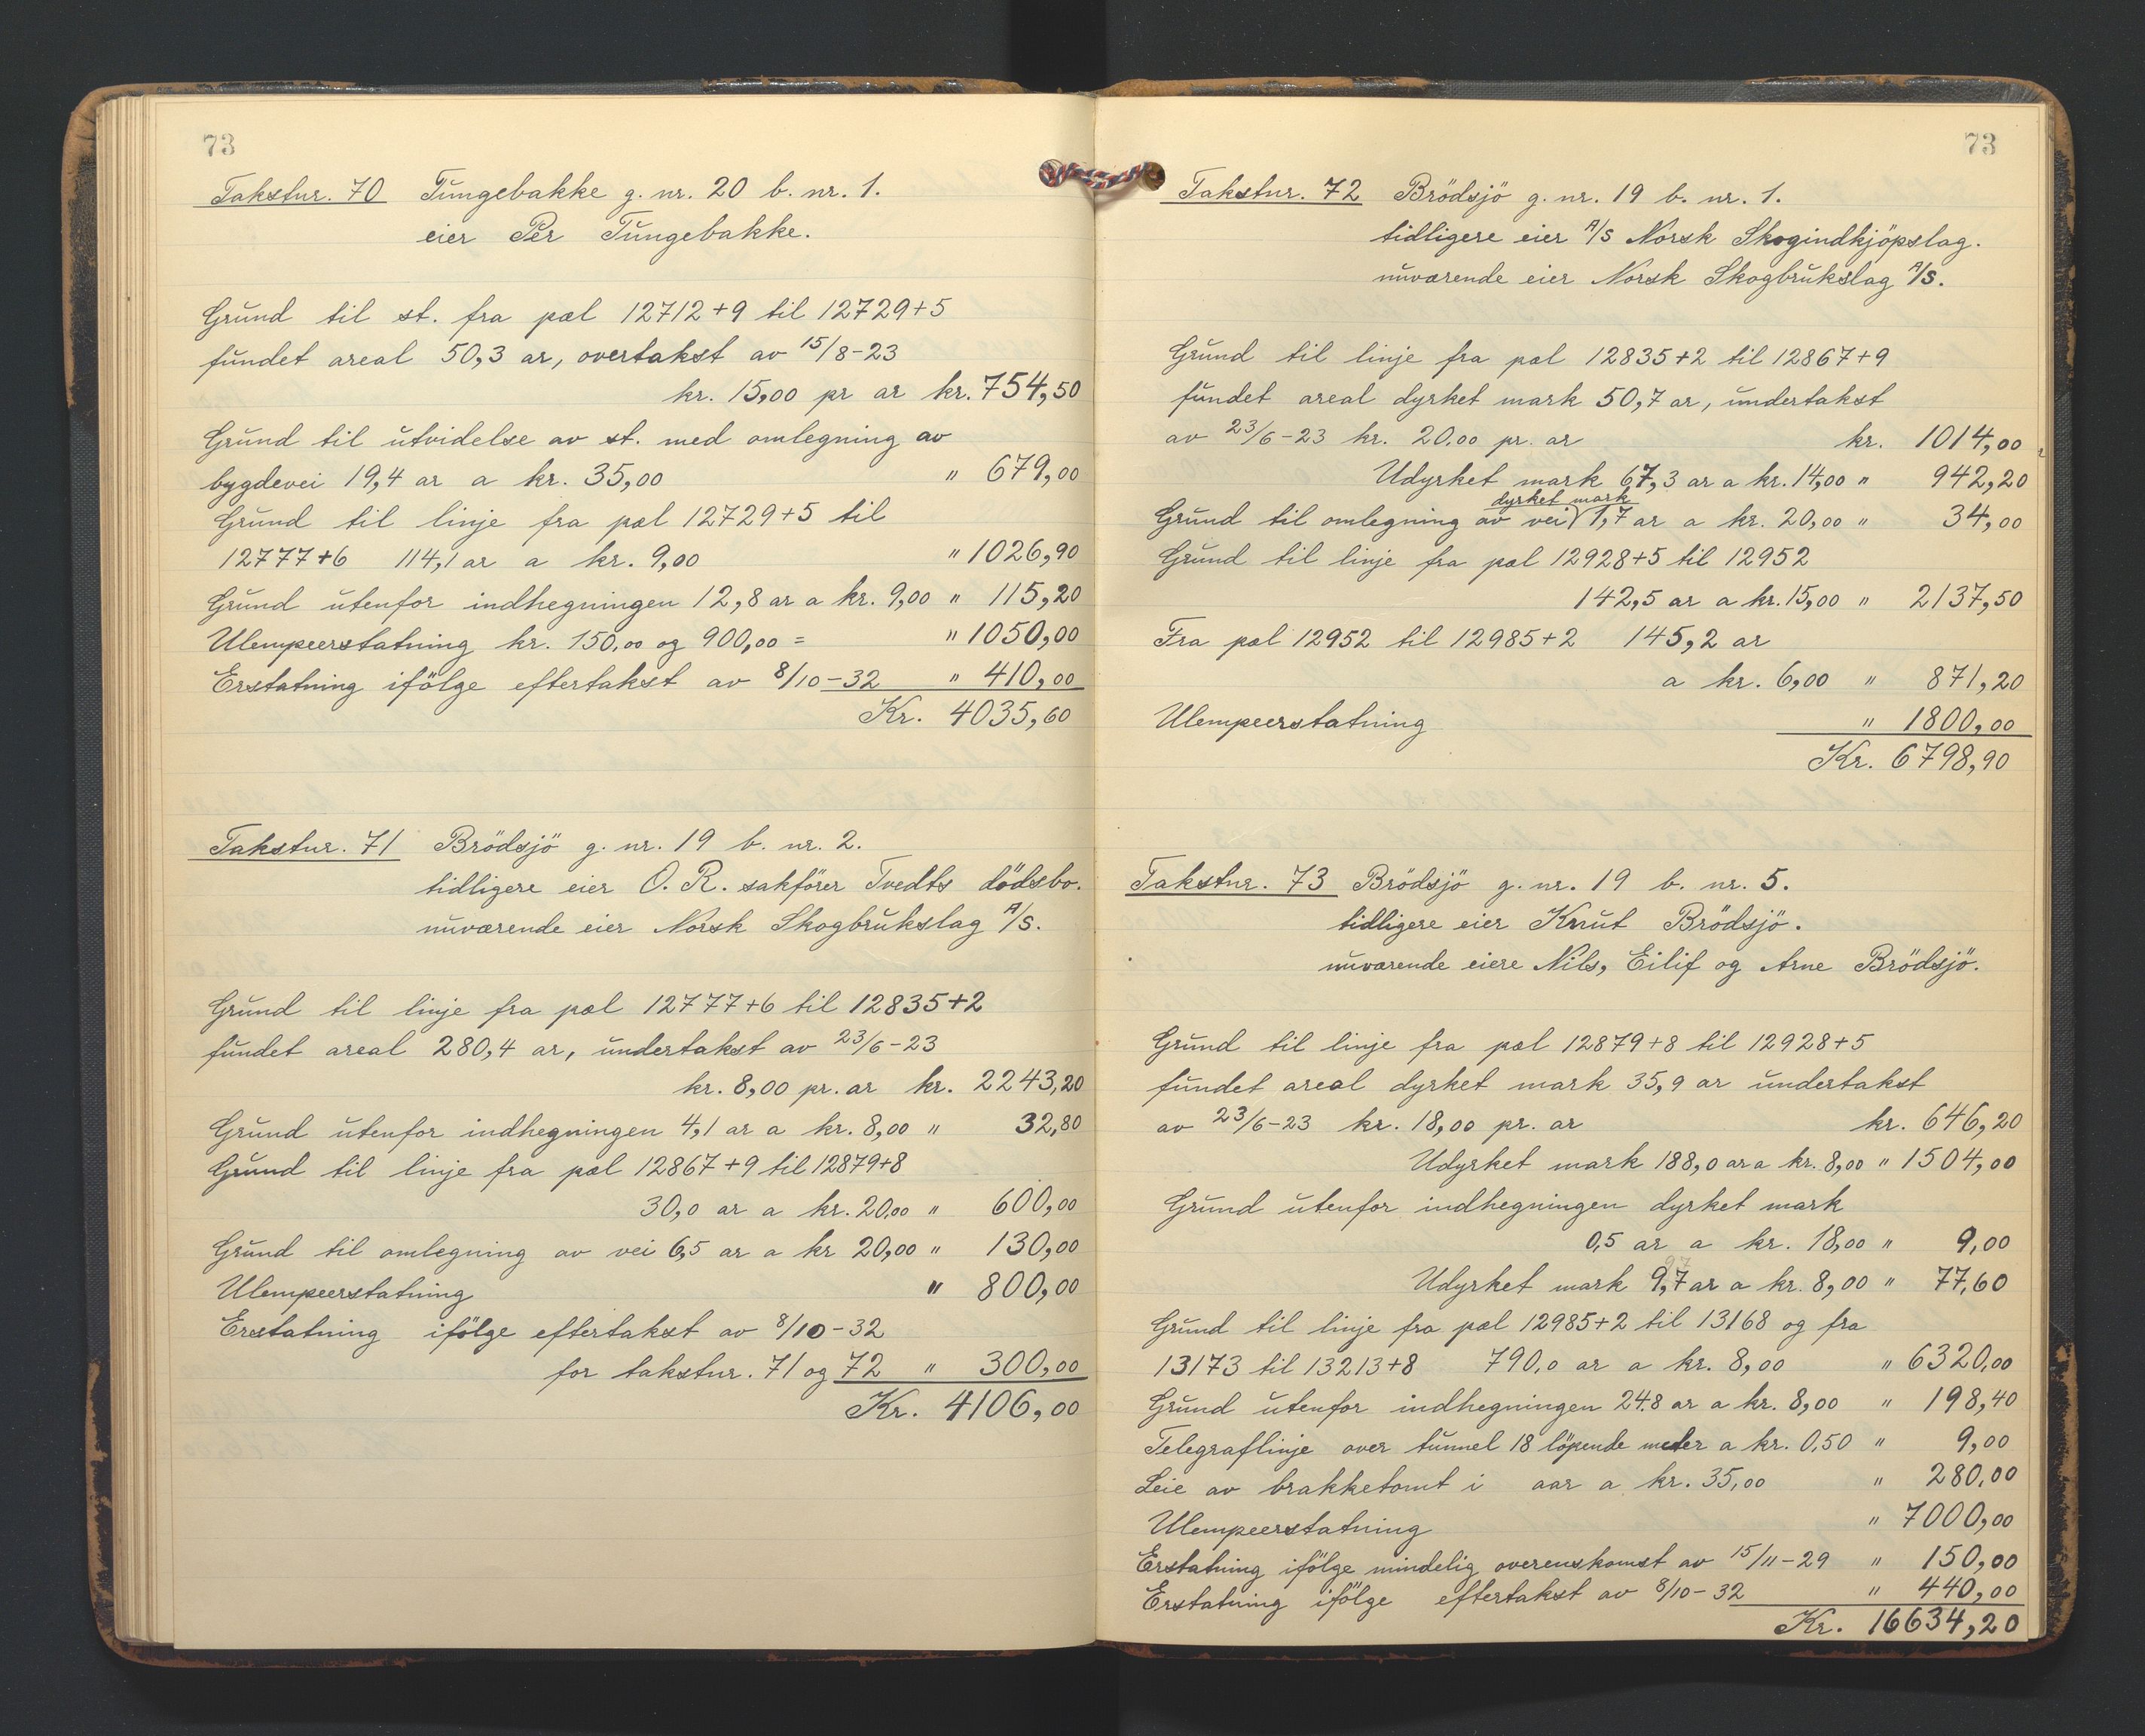 73
Takstnr. 70 Tungebakke g. nr. 20 b. nr. 1.
eier Per Tungebakke.
Grund til st. fra pæl 12712+9 til 12729+5
fundet areal 50,3 ar, overtakst av 15/8-23
kr. 15,00 pr ar kr. 754,50
Grund til utvidelse av st. med omlegning av
bygdevei 19,4 ar a kr. 35,00 " 679,00
Grund til linje fra pæl 12729+5 til
12777+6 114,1 ar a kr. 9,00 " 1026,90
Grund utenfor indhegningen 12,8 ar a kr. 9,00 " 115,20
Ulempeerstatning kr. 150,00 og 900,00 = " 1050,00
Erstatning ifölge eftertakst av 8/10-32 " 410,00
Kr. 4035,60
Takstnr. 71 Brödsjö g. nr. 19 b. nr. 2.
tidligere eier O. R. sakförer Tvedts dödsbo.
nuværende eier Norsk Skogbrukslag A/S.
Grund til linje fra pæl 12777+6 til 12835+2
fundet areal 280,4 ar, undertakst av 23/6-23
kr. 8,00 pr. ar kr. 2243,20
Grund utenfor indhegningen 4,1 ar a kr. 8,00 " 32,80
Grund til linje fra pæl 12867+9 til 12879+8
30,0 ar a kr. 20,00 " 600,00
Grund til omlegning av vei 6,5 ar a kr 20,00 " 130,00
Ulempeerstatning " 800,00
Erstatning ifölge eftertakst av 8/10-32
for takstnr. 71 og 72 " 300,00
Kr. 4106,00
73
Takstnr. 72 Brödsjö g. nr. 19 b. nr. 1.
tidligere eier A/S Norsk Skogindkjöpslag.
nuværende eier Norsk Skogbrukslag A/S.
Grund til linje fra pæl 12835+2 til 12867+9
fundet areal dyrket mark 50,7 ar, undertakst
av 23/6-23 kr. 20,00 pr. ar kr. 1014,00
Udyrket mark 67,3 ar a kr. 14,00 " 942,20
dyrket mark
Grund til omlegning av vei 1,7 ar a kr. 20,00 " 34,00
Grund til linje fra pæl 12928+5 til 12952
142,5 ar a kr. 15,00 " 2137,50
Fra pæl 12952 til 12985+2 145,2 ar
a kr. 6,00 " 871,20
Ulempeerstatning " 1800,00
Kr. 6798,90
Takstnr. 73 Brödsjö g. nr. 19 b. nr. 5.
tidligere eier Knut Brödsjö.
nuværende eiere Nils, Eilif og Arne Brödsjö.
Grund til linje fra pæl 12879+8 til 12928+5
fundet areal dyrket mark 35,9 ar undertakst
av 23/6-23 kr. 18,00 pr. ar kr. 646,20
Udyrket mark 188,0 ar a kr. 8,00 " 1504,00
Grund utenfor indhegningen dyrket mark
0,5 ar a kr. 18,00 " 9,00
Udyrket mark 9,7 ar a kr. 8,00 " 77,60
Grund til linje fra pæl 12985+2 til 13168 og fra
13173 til 13213+8 790,0 ar a kr. 8,00 " 6320,00
Grund utenfor indhegningen 24.8 ar a kr. 8,00 " 198,40
Telegraflinje over tunnel 18 löpende meter a kr. 0,50 " 9,00
Leie av brakketomt i aar a kr. 35,00 " 280,00
Ulempeerstatning " 7000,00
Erstatning ifölge mindelig overenskomst av 15/11-29 " 150,00
Erstatning ifölge eftertakst av 8/10-32 " 440,00
Kr. 16634,20